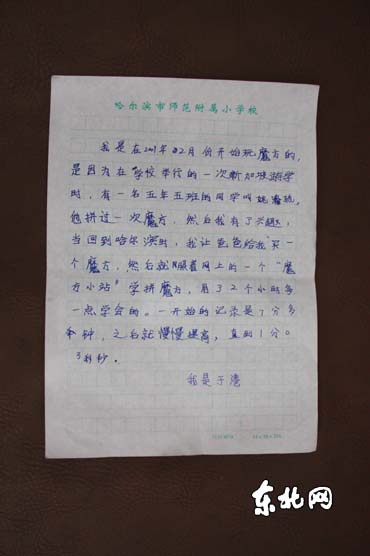 哈尔滨市师范附属小学校
我是在2011年02月份开始玩魔方的,
是因为在学校举行的一次新加坡游学
时,有一名五年五班的同学叫姚
他拼过一次魔方,然后我有了兴趣,
当回到哈尔滨时,我让爸爸给我买一
个魔方,然后就跟着网上的一个“魔
方小站”学拼魔方,用了2个小时多
一点学会的。一开始的记录是7分多
钟,之后就慢慢提高,直到1分0
3秒。
我是于鹰
东北网